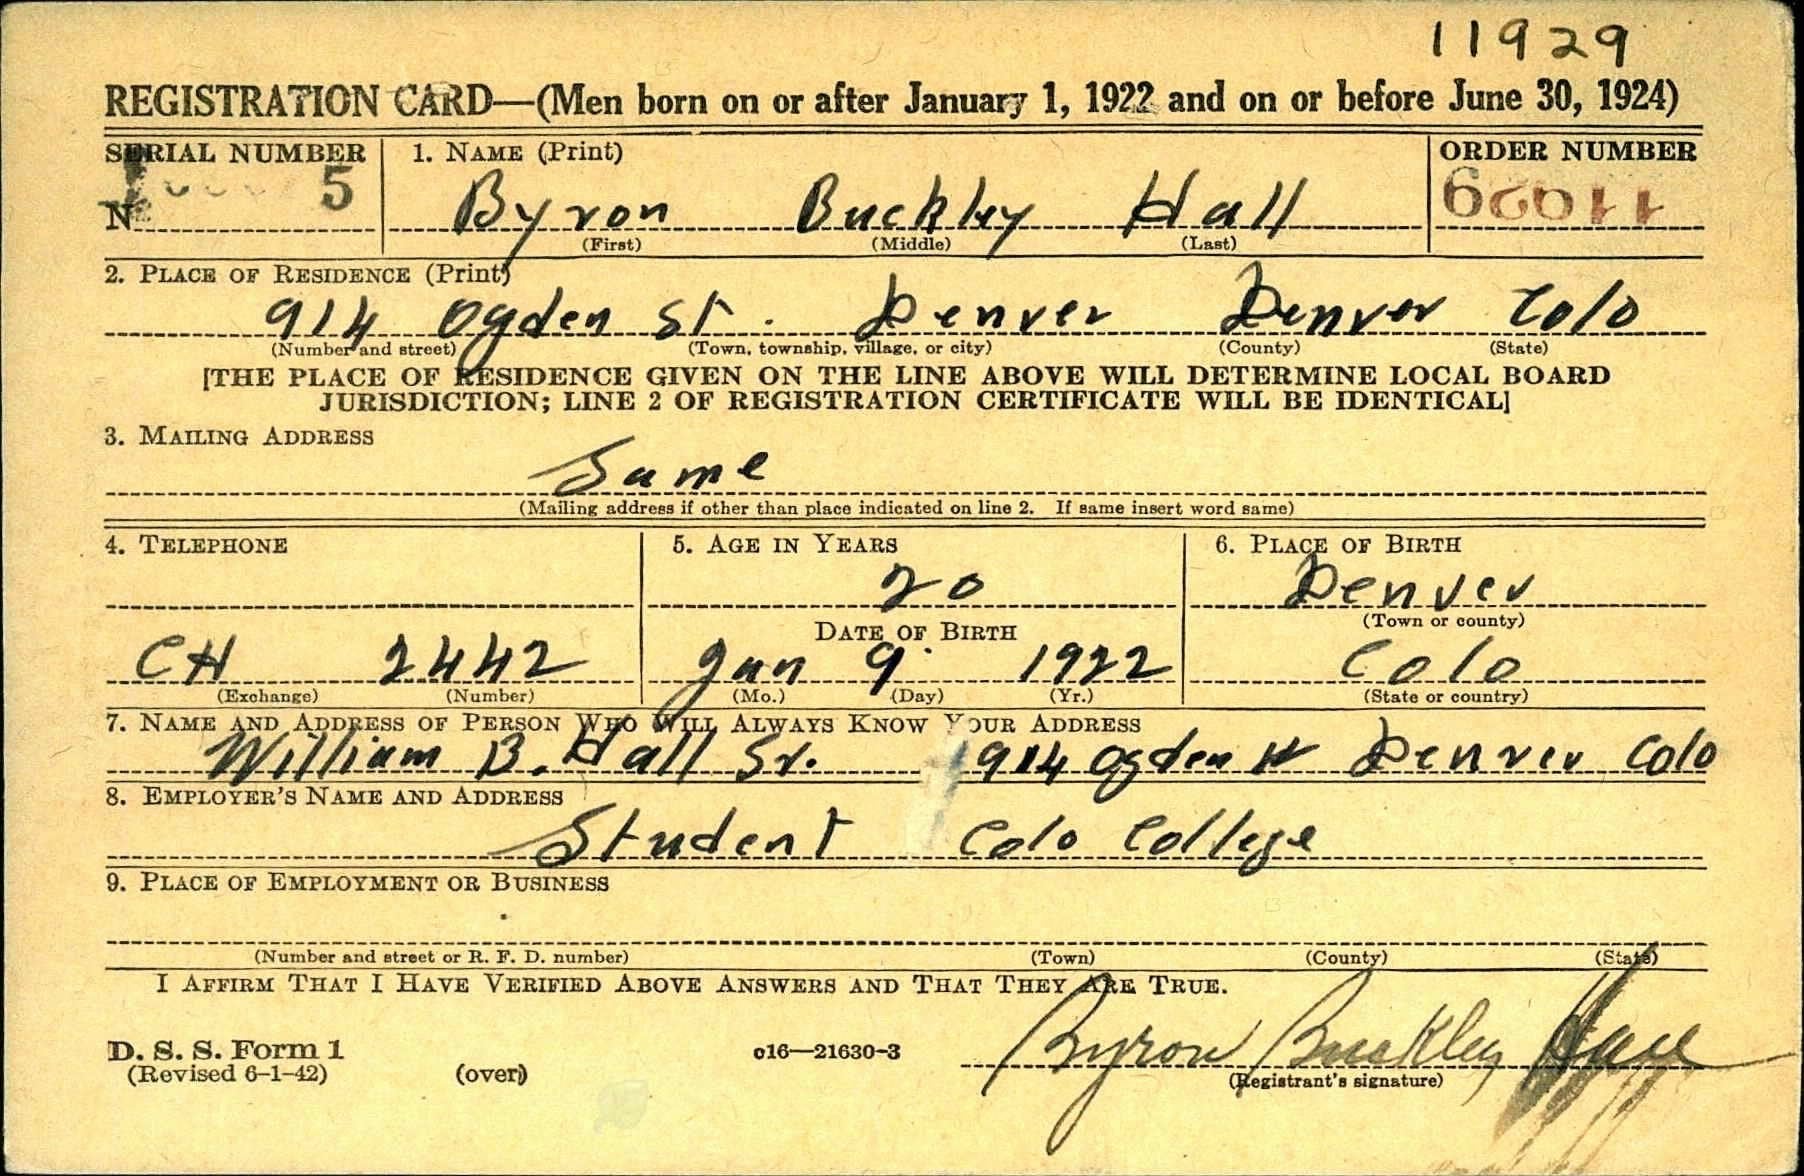 11929
REGISTRATION CARD—(Men born on or after January 1, 1922 and on or before June 30, 1924)
SERIAL NUMBER 1. NAME (Print) ORDER NUMBER
5 Byron Buckley Hall 11929
N
(First) (Middle) (Last)
2. PLACE OF RESIDENCE (Print)
914 Ogden St. Denver Denver Colo
(Number and street) (Town, township, village, or city) (County) (State)
[THE PLACE OF RESIDENCE GIVEN ON THE LINE ABOVE WILL DETERMINE LOCAL BOARD
JURISDICTION; LINE 2 OF REGISTRATION CERTIFICATE WILL BE IDENTICAL]
3. MAILING ADDRESS
Same
(Mailing address if other than place indicated on line 2. If same insert word same)
4. TELEPHONE 5. AGE IN YEARS 6. PLACE OF BIRTH
20 Denver
DATE OF BIRTH (Town or county)
CH 2442 Jan 9 1922 Colo
(Exchange) (Number) (Mo.) (Day) (Yr.) (State or country)
7. NAME AND ADDRESS OF PERSON WHO WILL ALWAYS KNOW YOUR ADDRESS
William B. Hall Sr. 914 Ogden St Denver Colo
8. EMPLOYER'S NAME AND ADDRESS
Student Colo College
9. PLACE OF EMPLOYMENT OR BUSINESS
(Number and street or R. F. D. number) (Town) (County) (State)
I AFFIRM THAT I HAVE VERIFIED ABOVE ANSWERS AND THAT THEY ARE TRUE.
Byron Buckley Hall
D. S. S. Form 1
(Revised 6-1-42) (over) c16—21630-3 (Registrant's signature)